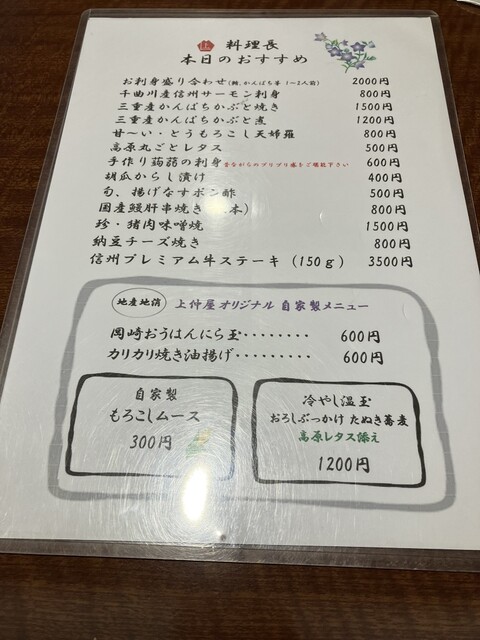 料理長
本日のおすすめ
お刺身盛り合わせ(鯉、かんぱち等 1〜2人前) 2000円
千曲川産信州サーモン刺身 800円
三重産かんぱちかぶと焼き 1500円
三重産かんぱちかぶと煮 1200円
甘〜い・とうもろこし天婦羅 800円
高原丸ごとレタス 500円
手作り蒟蒻の刺身 昔ながらのプリプリ感をご堪能下さい 600円
胡瓜からし漬け 400円
旬、揚げなすポン酢 500円
国産鰻肝串焼き( 本) 800円
珍・猪肉味噌焼 1500円
納豆チーズ焼き 800円
信州プレミアム牛ステーキ (150g) 3500円
地産地消 上仲屋オリジナル 自家製メニュー
岡崎おうはんにら玉・・・・・・・・ 600円
カリカリ焼き油揚げ・・・・・・・・・ 600円
自家製
もろこしムース
300円
冷やし温玉
おろしぶっかけ たぬき蕎麦
高原レタス添え
1200円